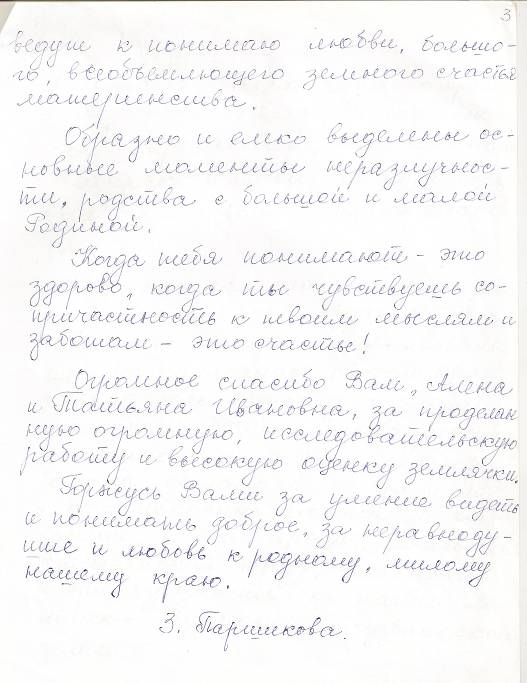 3
ведущ к понимаю любви, большо-
го, всеобъемлющего земного счастья
материнства.
Образно и емко выделены ос-
новные моменты неразлучнос-
ти, родства с большой и малой
Родиной.
Когда тебя понимают - это
здорово, когда ты чувствуешь со-
причастность к твоим мыслям и
заботам - это счастье!
Огромное спасибо Вам, Алена
и Татьяна Ивановна, за проделан
ную огромную, исследовательскую
работу и высокую оценку землячки.
Горжусь Вами за умение видеть
и понимать доброе, за неравноду-
шие и любовь к родному, милому
нашему краю.
З. Паршикова.